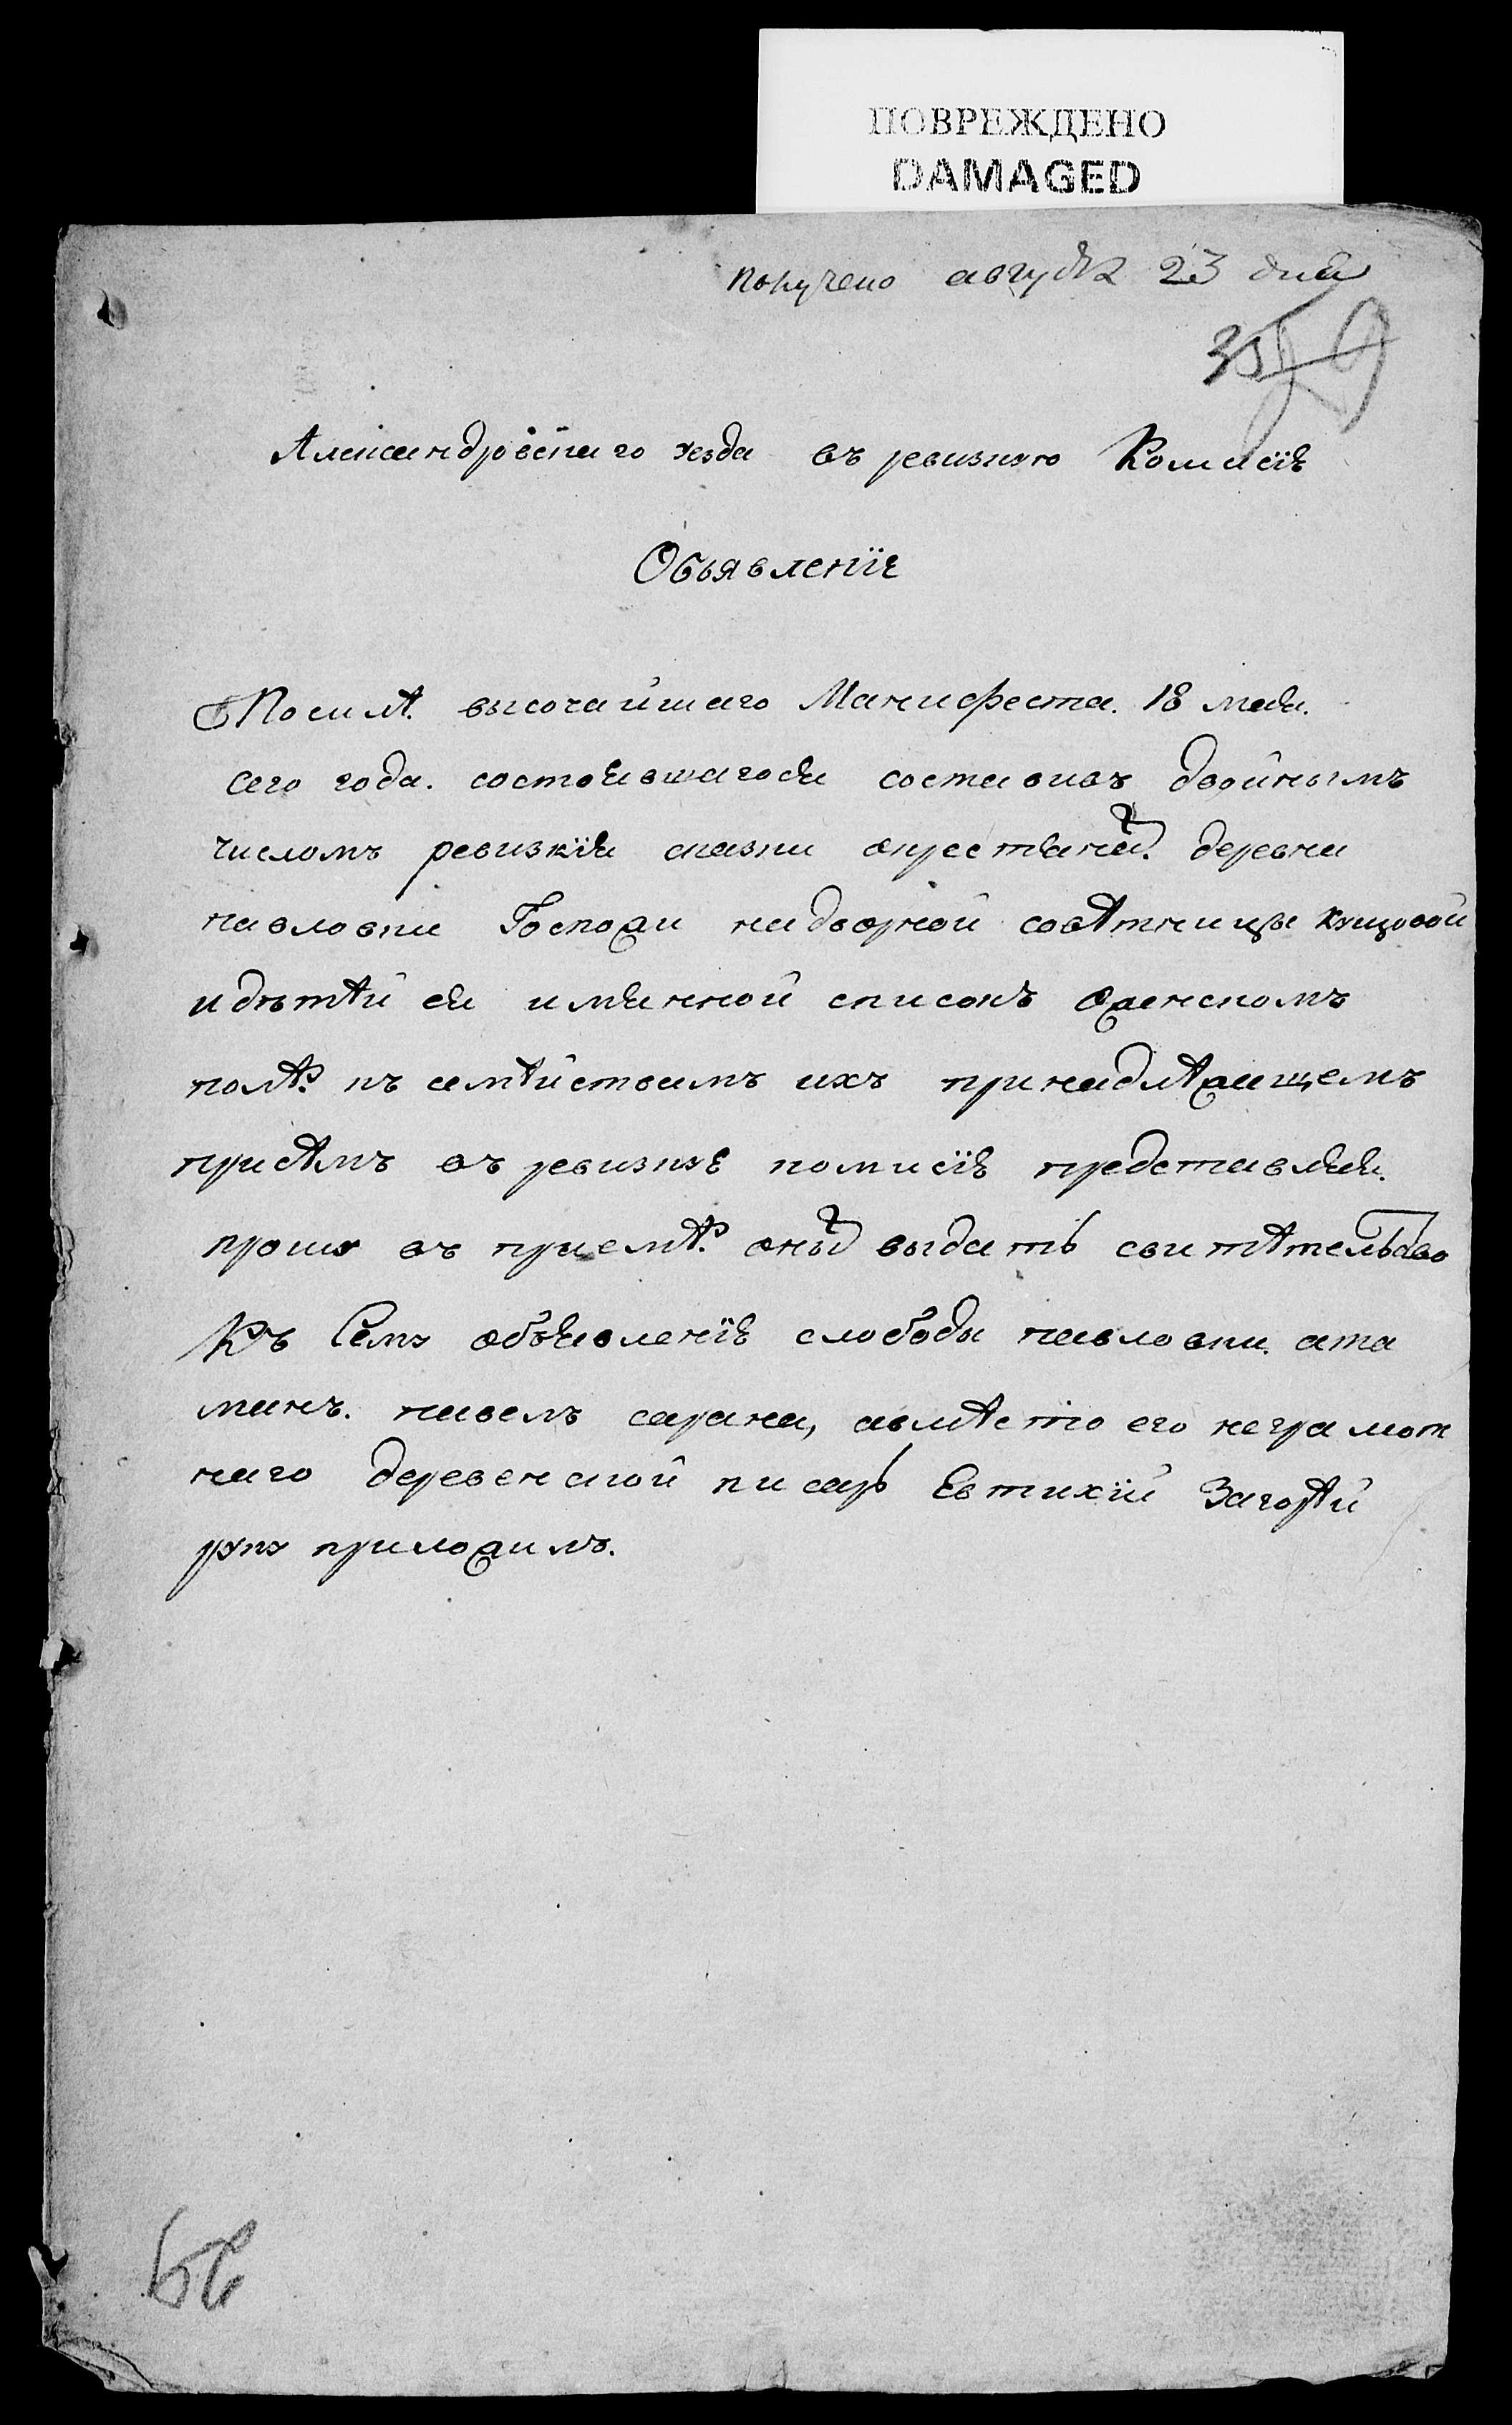 ПОВРЕЖДЕНО
DAMAGED
получено августа 23 дня
Александровскаго уезда въ ревизкую Комисїю
Объявленїе
Посилѣ высочайшаго Манифеста. 18 мая.
сего года. состоявшагося составивъ двойнымъ
числомъ ревизкїя сказки окрестьянахъ. деревни
павловки Госпожи надворной совѣтницы
идѣтѣй ея имянной списокъ оженскомъ
полѣ. къ семѣйствамъ ихъ принадлѣжащемъ
присѣмъ въ ревизкую комисїю представляя.
прошу въ приемѣ. оныхъ выдать свитѣтельство
Къ Сему объявленїю слободы павловки. ата
манъ. павелъ сарана, авмѣсто его неграмот
наго деревенской писарь Евтихїй Загорѣй
руку приложилъ.